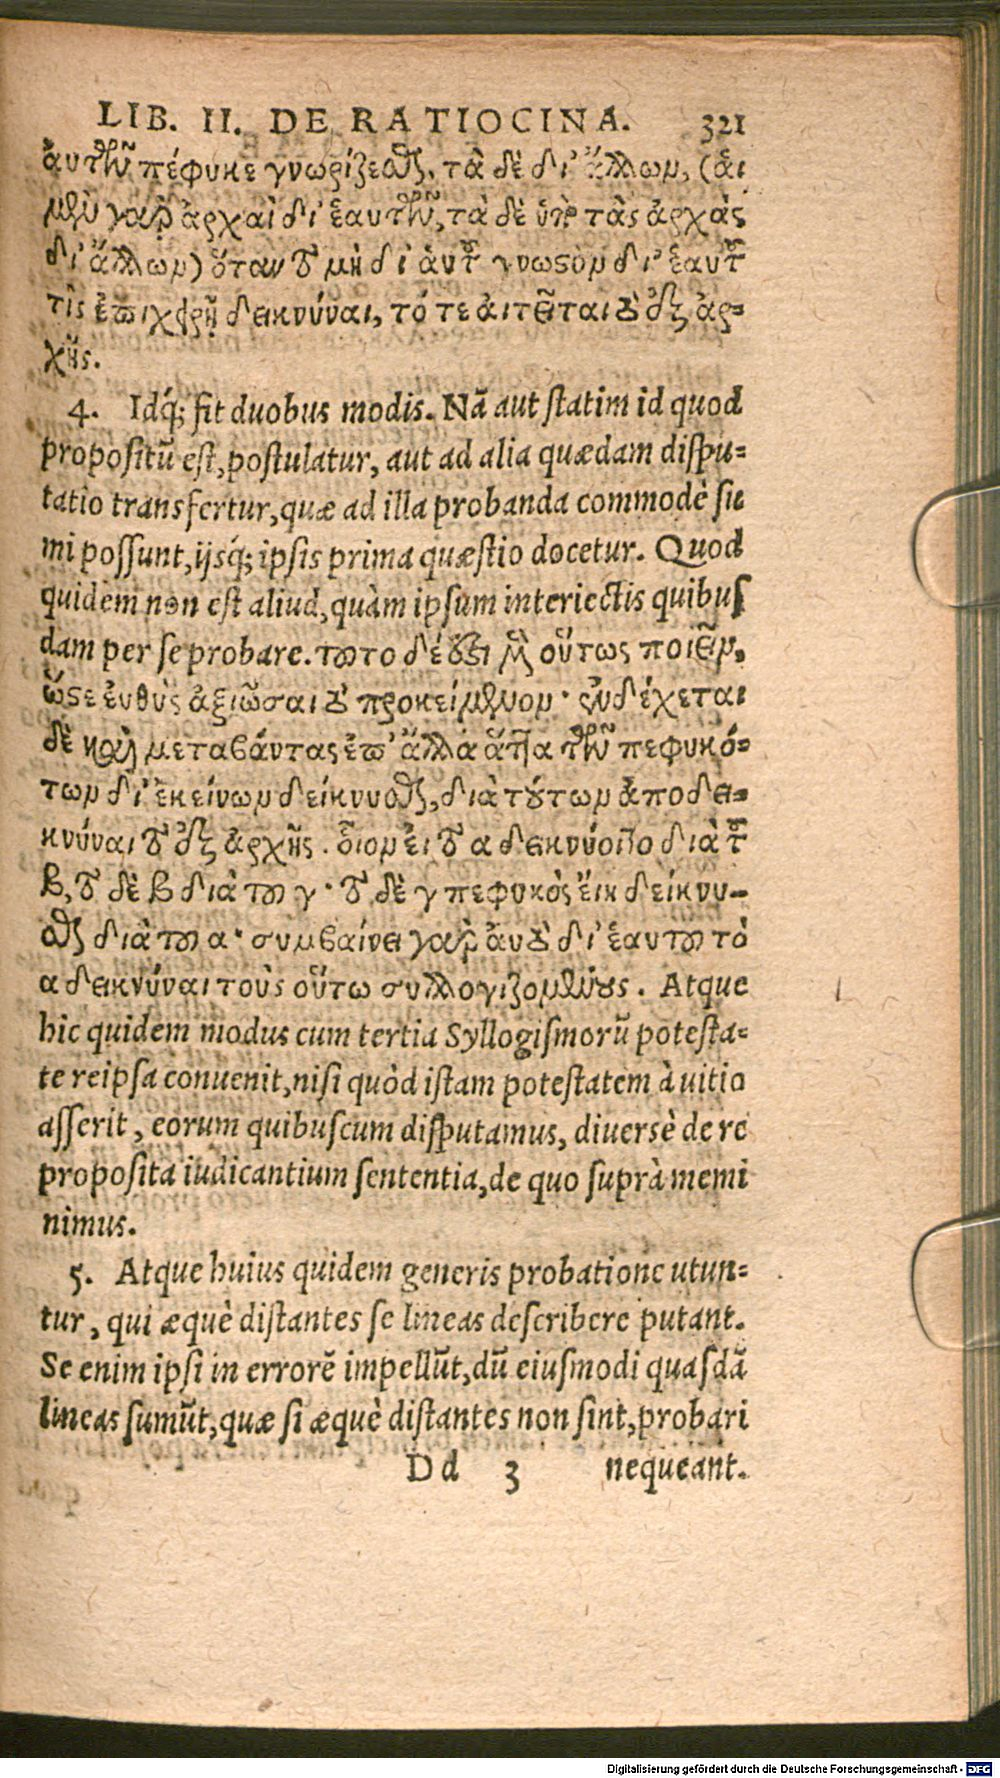 LIB. II. DE RATIOCINA. 321
ἁυτῶν πέφυκε γνωρίζεσθαι, τὰ δὲ δι᾽ ἄλλων, (ἁι
μὲν γαρ ἀρχαὶ δι᾽ ἑαυτῶν, τὰ δὲ ὑπὸ τὰς ἀρχὰς
δι᾽ ἄλλων) ὅταν τὸ μὴ δι᾽ ἁυτοῦ γνωστὸν δι᾽ ἑαυτοῦ
τὶς ἐπιχειρῇ δεικνύναι, τό τε ἀιτεῖται τὸ ἐξ ἀρ-
χῆς.
4. Idq́; fit duobus modis. Nā aut statim id quod
propositū est, postulatur, aut ad alia quædam dispu-
tatio transfertur, quæ ad illa probanda commodè su
mi possunt, ijsq́; ipsis prima quæstio docetur. Quod
quidem non est aliud, quàm ipsum interiectis quibus
dam per se probare. τοῦτο δέ ἐστι μὲν οὕτως ποιεῖν,
ὥστε ἐυθὺς ἀξιῶσαι τὸ προκείμενον· ἐνδέχεται
δὲ καὶ μεταβάντας ἐπ᾽ ἄλλα ἅττα τῶν πεφυκό-
των δι᾽ ἐκείνων δείκνυσθαι, διὰ τούτων ἀποδει-
κνύναι τὸ ἐξ ἀρχῆς. οἷον ἐι τὸ α δεικνύοιτο διὰ τοῦ
β, τὸ δὲ β διὰ τοῦ γ· τὸ δὲ γ πεφυκὸς ἔιη δείκνυ-
σθαι διὰ τοῦ α· συμβαίνει γαρ ἀυτὸ δι᾽ ἑαυτοῦ τὸ
α δεικνύναι τοὺς οὕτω συλλογιζομένους. Atque
hic quidem modus cum tertia Syllogismorū potesta-
te reipsa conuenit, nisi quòd istam potestatem à uitio
asserit, eorum quibuscum disputamus, diuersè de re
proposita iudicantium sententia, de quo suprà memi
nimus.
5. Atque huius quidem generis probatione utun-
tur, qui æquè distantes se lineas describere putant.
Se enim ipsi in errorē impellūt, dū eiusmodi quasdā
lineas sumūt, quæ si æquè distantes non sint, probari
Dd 3 nequeant.
Digitalisierung gefördert durch die Deutsche Forschungsgemeinschaft - DFG